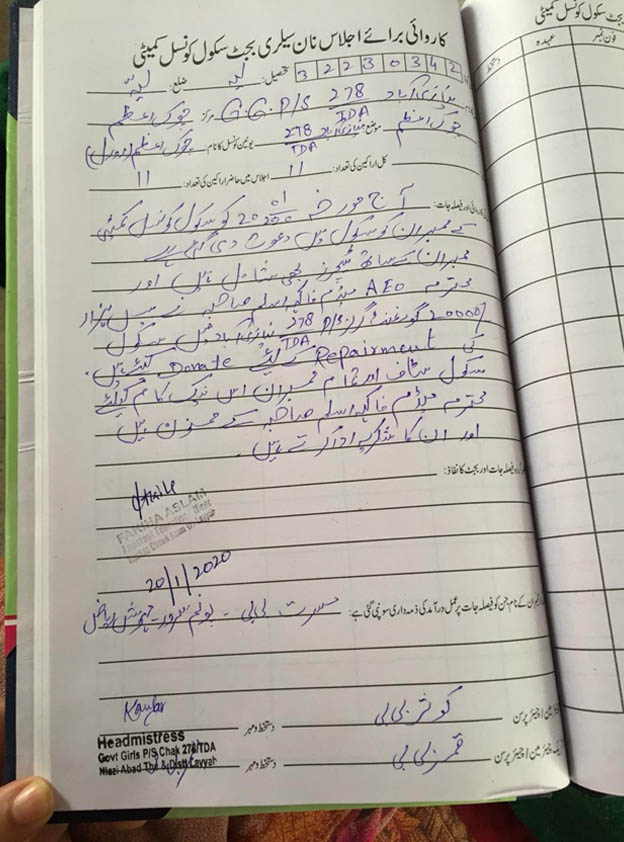 کاروائی برائے اجلاس نان سیلری بجٹ سکول کونسل کمیٹی
3 2 2 3 0 3 4 2 تحصیل: لیہ ضلع: لیہ
نیازی آباد 278/TDA G.G.P/S مرکز چوک اعظم
چوک اعظم موضع نیازی آباد 278/TDA یونین کونسل کا نام: چوک اعظم (رورل)
کل اراکین کی تعداد: 11 اجلاس میں حاضر اراکین کی تعداد: 11
کاروائی اور فیصلہ جات: آج مورخہ 20-01-20 کو سکول کونسل کمیٹی
کے ممبران کو سکول میں دعوت دی گئی ہے
ممبران کے ساتھ ٹیچرز بھی شامل ہیں اور
محترم AEO میڈم فاکہہ اسلم صاحبہ نے مبلغ بیس ہزار
20000/ گورنمنٹ گرلز P/S 278/TDA نیازی آباد میں سکول
کی Repairment کیلئے Donate کیئے ہیں۔
سکول سٹاف اور تمام ممبران اس نیک کام کیلئے
محترم میڈم فاکہہ اسلم صاحبہ کے ممنون ہیں
اور ان کا شکریہ ادا کرتے ہیں۔
فیصلہ جات اور بجٹ کا نفاذ:
FAKIHA ASLAM
Assistant Education Officer
20/1/2020
ممبران کے نام جن کو فیصلہ جات پر عمل درآمد کی ذمہ داری سونپی گئی ہے: مسرت بی بی - پونم سرور - مہوش ریاض
چیئرمین / چیئر پرسن کوثر بی بی دستخط و مہر Kausar
چیئرمین / چیئر پرسن قمر بی بی دستخط و مہر
Headmistress
Govt Girls P/S Chak 278/TDA
Niazi Abad The & Distt Layyah
بجٹ سکول کونسل کمیٹی
فون نمبر عہدہ دستخط